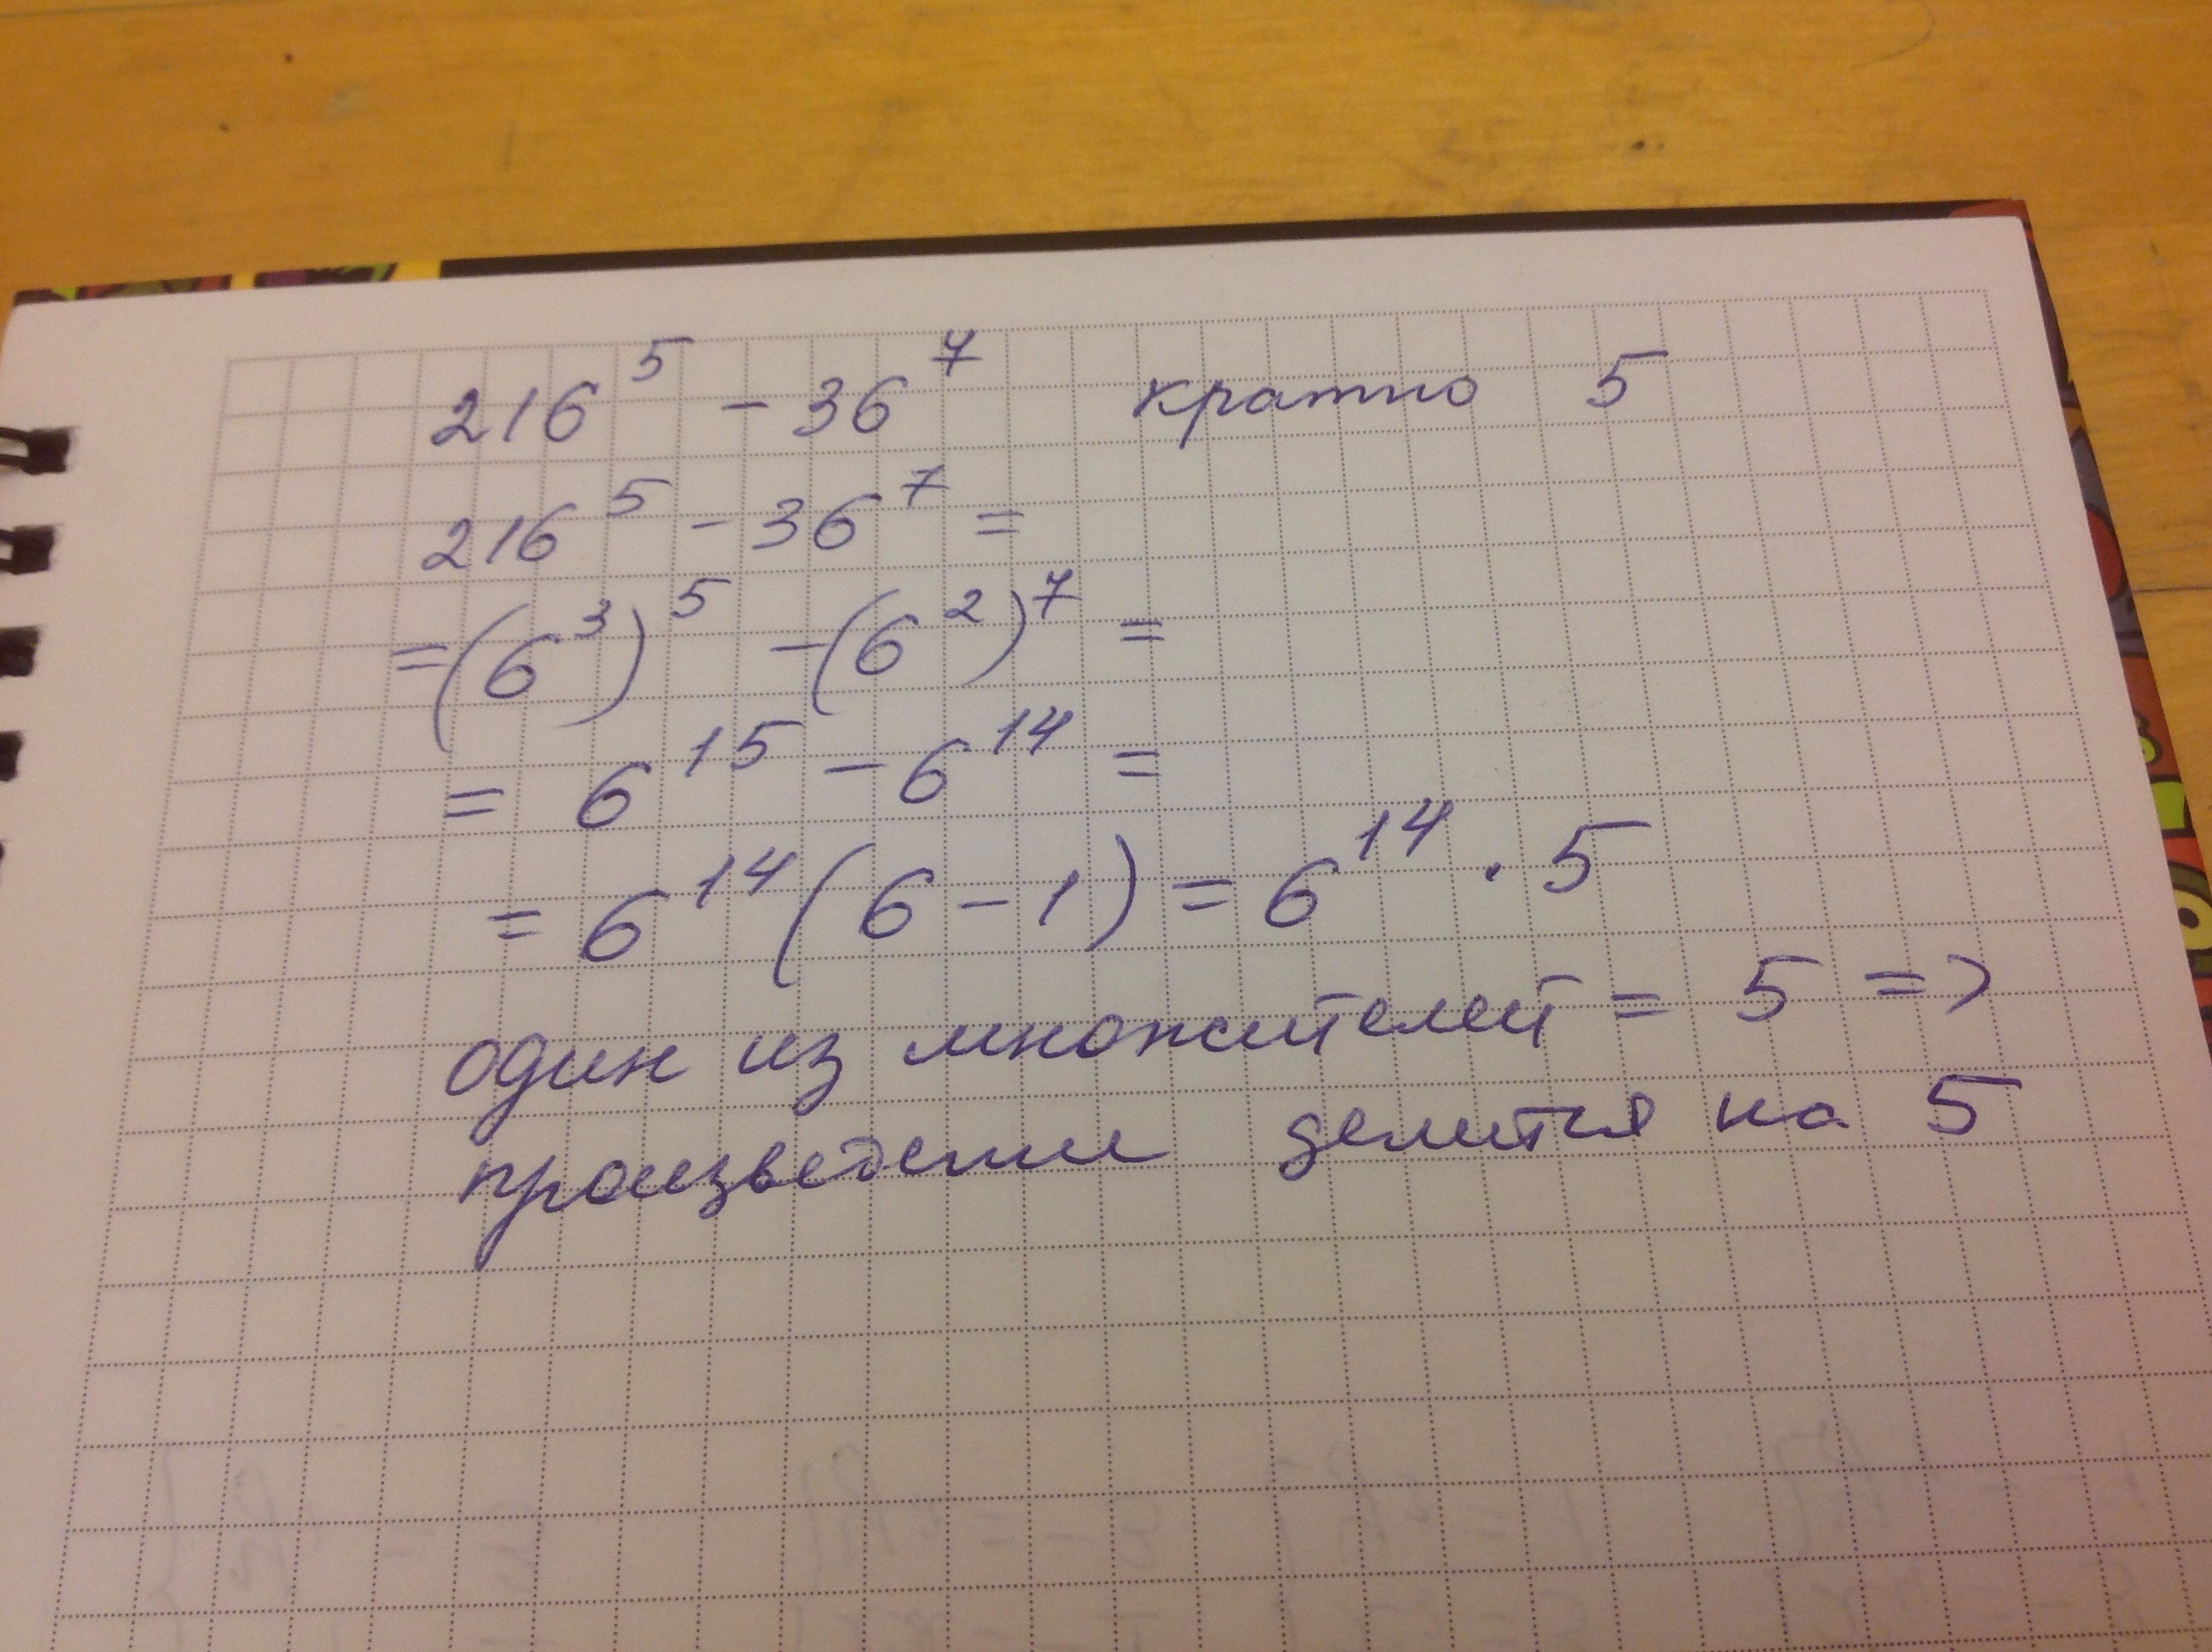 216⁵ - 36⁷ кратно 5
216⁵ - 36⁷ =
= (6³)⁵ - (6²)⁷ =
= 6¹⁵ - 6¹⁴ =
= 6¹⁴ (6 - 1) = 6¹⁴ · 5
один из множителей = 5 =>
произведение делится на 5